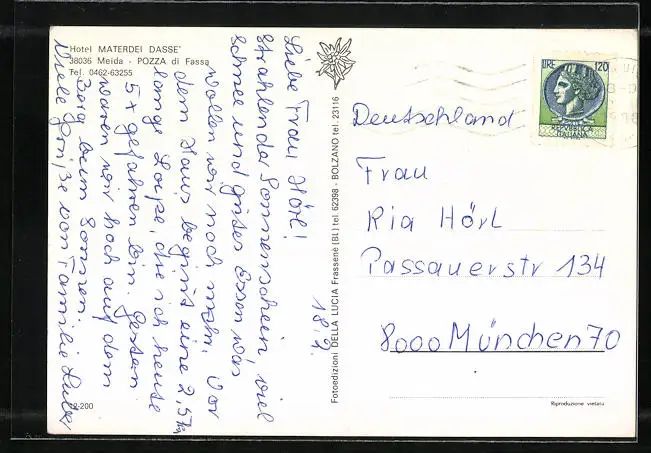 Hotel MATERDEI DASSE'
38036 Meida - POZZA di Fassa
Tel. 0462-63255
18.2.
Liebe Frau Hörl!
Strahlender Sonnenschein, viel
Schnee und gutes Essen was
wollen wir noch mehr. Vor
dem Haus beginnt eine 2,5 km
lange Loipe, die ich heute
5x gefahren bin. Gestern
waren wir hoch auf dem
Berg beim Sonnen.
Viele Grüße von Familie
72-200
Fotoedizioni DELLA LUCIA Frassenè (BL) tel. 62398 - BOLZANO tel. 23116
LIRE 120
REPVBBLICA
ITALIANA
Deutschland
Frau
Ria Hörl
Passauerstr 134
8000 München 70
Riproduzione vietata